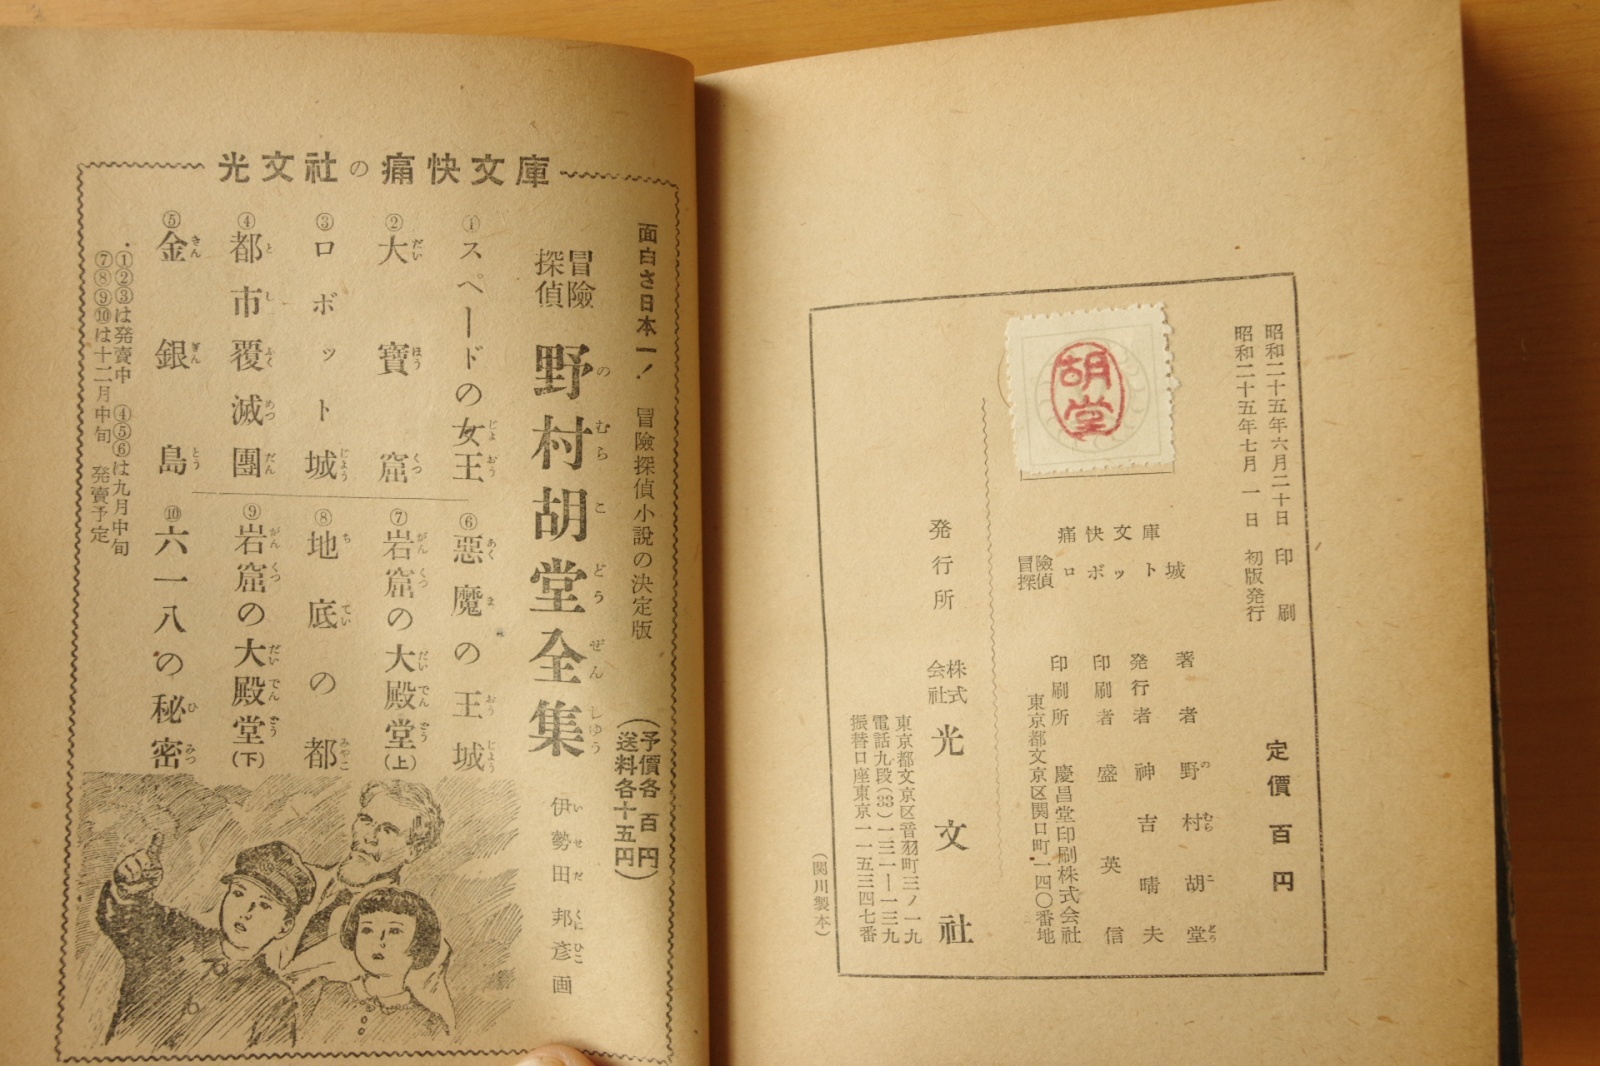 光文社の痛快文庫
面白さ日本一！ 冒險探偵小説の決定版
（予價各百円
送料各十五円）
冒險
探偵
野村胡堂全集
のむらこどうぜんしゆう
伊勢田邦彥画
いせだくにひこ
①スペードの女王
②大寶窟
③ロボット城
④都市覆滅團
⑤金銀島
⑥惡魔の王城
⑦岩窟の大殿堂(上)
⑧地底の都
⑨岩窟の大殿堂(下)
⑩六一八の秘密
①②③は発賣中 ④⑤⑥は九月中旬
⑦⑧⑨⑩は十二月中旬 発賣予定
昭和二十五年六月二十日 印刷
昭和二十五年七月一日 初版発行
定價百円
胡堂
痛快文庫
冒險
探偵
ロボット城
著者 野村胡堂
発行者 神吉晴夫
印刷者 盛英信
印刷所 慶昌堂印刷株式会社
東京都文京区関口町一四〇番地
発行所
株式
会社
光文社
東京都文京区音羽町三ノ一九
電話九段(33)一三一一一三九
振替口座東京一一五三四七番
（関川製本）